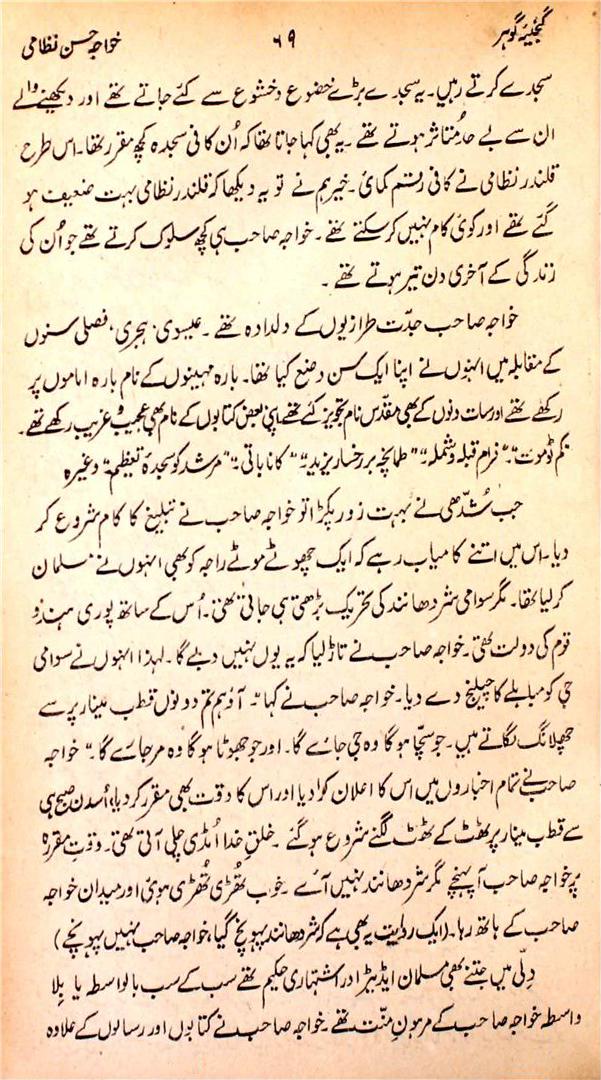 گنجینۂ گوہر ۶۹ خواجہ حسن نظامی
سجدے کرتے رہیں۔ یہ سجدے بڑے خضوع و خشوع سے کئے جاتے تھے اور دیکھنے والے
ان سے بے حد متاثر ہوتے تھے۔ یہ بھی کہا جاتا تھا کہ اُن کا فی سجدہ کچھ مقرر تھا۔ اس طرح
قلندر نظامی نے کافی رستم کمائی۔ خیر ہم نے تو یہ دیکھا کہ قلندر نظامی بہت ضعیف ہو
گئے تھے اور کوئی کام نہیں کر سکتے تھے۔ خواجہ صاحب ہی کچھ سلوک کرتے تھے جو اُن کی
زندگی کے آخری دن تیر ہوتے تھے۔
خواجہ صاحب جدّت طرازیوں کے دلدادہ تھے۔ عیسوی، ہجری، فصلی سنوں
کے مقابلہ میں انہوں نے اپنا ایک سن وضع کیا تھا۔ بارہ مہینوں کے نام بارہ اماموں پر
رکھے تھے اور سات دنوں کے بھی مقدّس نام تجویز کئے تھے، اپنی بعض کتابوں کے نام بھی عجیب و غریب رکھے تھے۔
"تم ٹوموت"۔ "فرام قبلہ و شملہ"۔ "طمانچہ بر رخسار یزید"۔ "کانا باتی"۔ "مرشد کو سجدۂ تعظیم" وغیرہ
جب شُدّھی نے بہت زور پکڑا تو خواجہ صاحب نے تبلیغ کا کام شروع کر
دیا۔ اس میں اتنے کامیاب رہے کہ ایک چھوٹے موٹے راجہ کو بھی انہوں نے مسلمان
کر لیا تھا۔ مگر سوامی شردھانند کی تحریک بڑھتی ہی جاتی تھی۔ اُس کے ساتھ پوری ہندو
قوم کی دولت تھی۔ خواجہ صاحب نے تاڑ لیا کہ یہ یوں نہیں دبے گا۔ لہٰذا انہوں نے سوامی
جی کو مباہلے کا چیلنج دے دیا۔ خواجہ صاحب نے کہا "آؤ ہم تم دونوں قطب مینار پر سے
چھلانگ لگاتے ہیں۔ جو سچّا ہوگا وہ جی جائے گا۔ اور جو جھوٹا ہوگا وہ مر جائے گا۔" خواجہ
صاحب نے تمام اخباروں میں اس کا اعلان کرا دیا اور اس کا وقت بھی مقرر کر دیا، اُس دن صبح ہی
سے قطب مینار پر ٹھٹ کے ٹھٹ لگنے شروع ہو گئے۔ خلقِ خدا اُمڈی چلی آتی تھی۔ وقتِ مقررہ
پر خواجہ صاحب آ پہنچے مگر شردھانند نہیں آئے۔ خوب تھڑی تھڑی ہوئی اور میدان خواجہ
صاحب کے ہاتھ رہا۔ (ایک روایت یہ بھی ہے کہ شردھانند پہونچ گیا، خواجہ صاحب نہیں پہونچے)
دِلّی میں جتنے بھی مسلمان ایڈیٹر اور اشتہاری حکیم تھے سب کے سب بالواسطہ یا بِلا
واسطہ خواجہ صاحب کے مرہونِ منّت تھے۔ خواجہ صاحب نے کتابوں اور رسالوں کے علاوہ